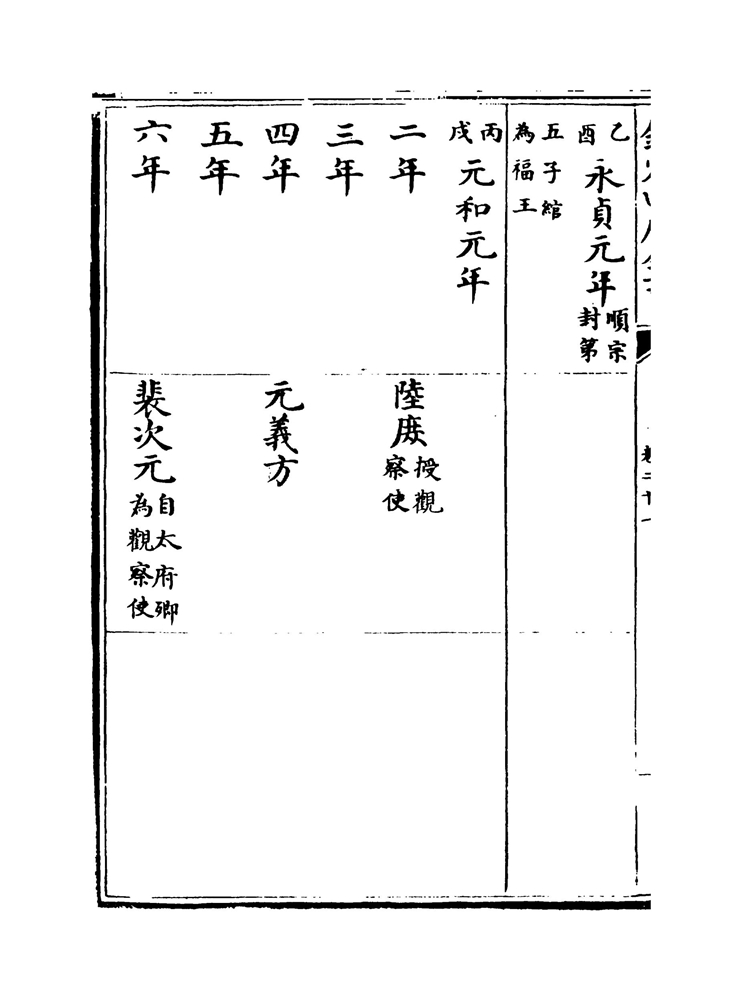 乙酉永貞元年順宗封第
五子綰為福王
丙戌元和元年
二年 陸庻授觀察使
三年
四年 元義方
五年
六年 裴次元自太府卿為觀察使